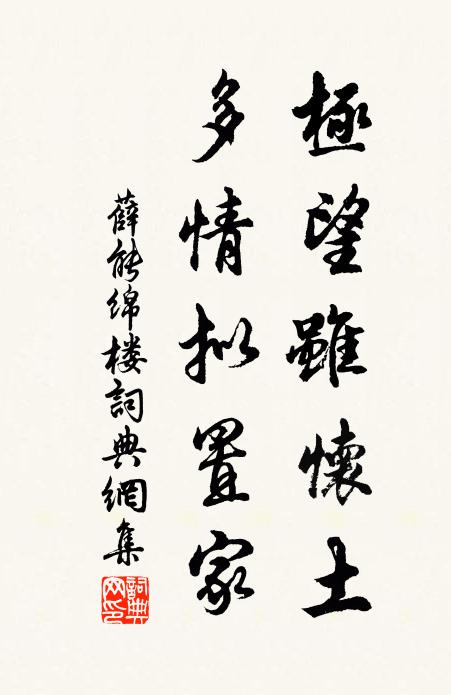 極望雖懷土
多情拟置家
薛能绵楼詞典網集
詞典网印